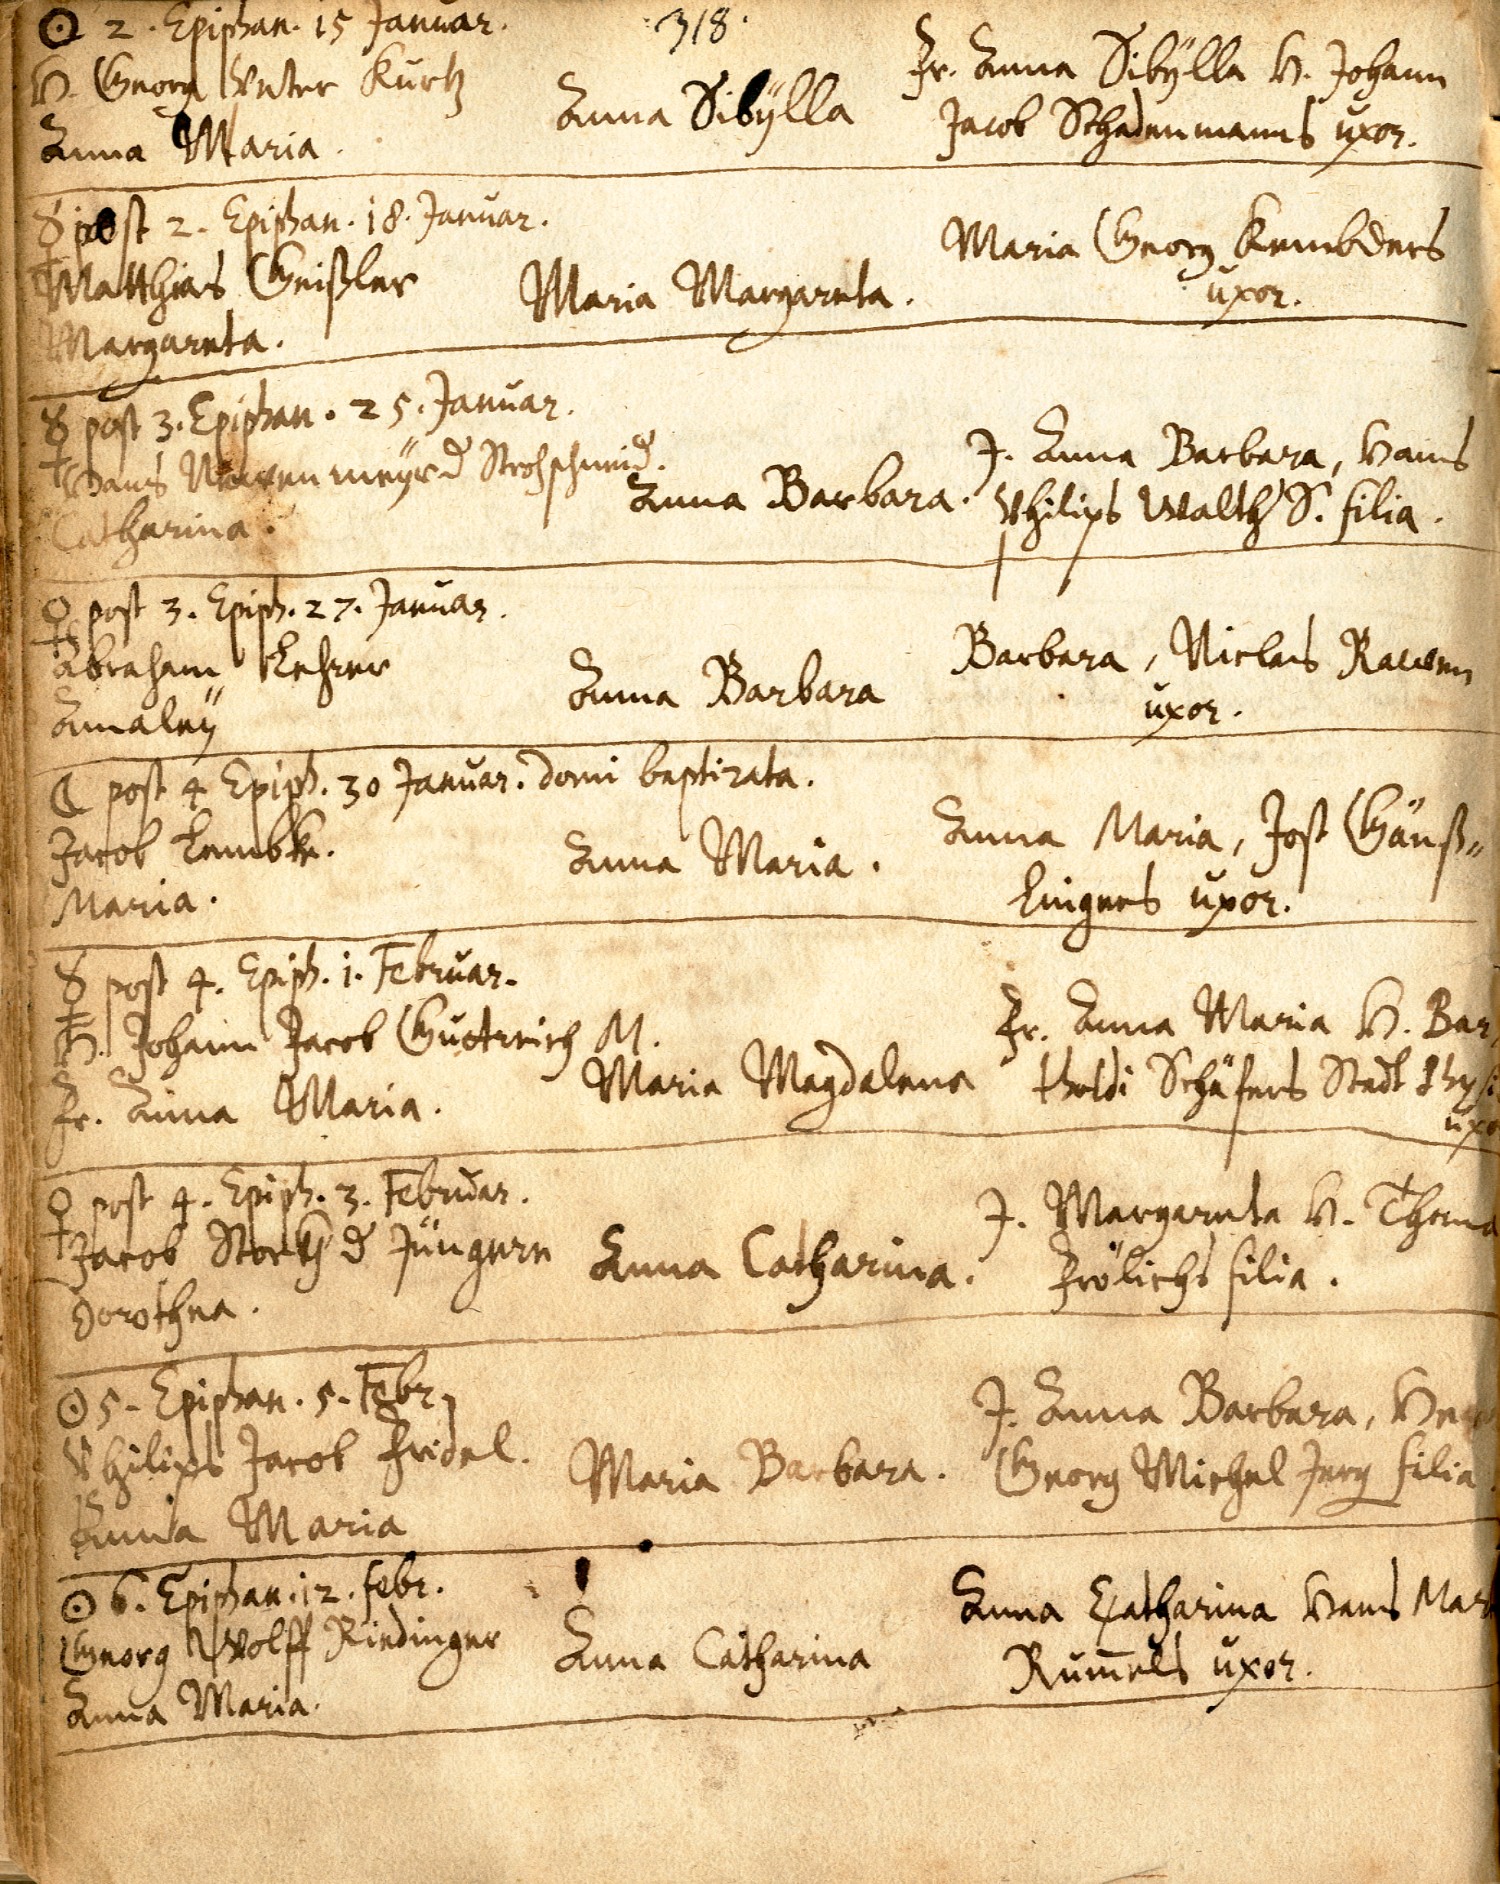 318.
☉ 2. Epiphan. 15 Januar.
H. Georg Peter Kurtz
Anna Maria.
Anna Sibÿlla
Fr. Anna Sibÿlla H. Johann
Jacob Schadenmanns uxor.
☿ post 2. Epiphan. 18. Januar.
Matthias Geißler
Margareta.
Maria Margareta.
Maria Georg
uxor.
☿ post 3. Epiphan. 25. Januar.
Hans Strohschneid.
Catharina.
Anna Barbara.
J. Anna Barbara, Hans
Philips Walth S. filia.
♀ post 3. Epiph. 27. Januar.
Abraham Lehrer
Amaleÿ
Anna Barbara
Barbara, Niclaus Rauen
uxor.
☾ post 4 Epiph. 30 Januar. domi baptizata.
Jacob Lembke.
Maria.
Anna Maria.
Anna Maria, Jost Gänß-
lingers uxor.
☿ post 4. Epiph. 1. Februar.
H. Johann Jacob M.
Fr. Anna Maria.
Maria Magdalena
Fr. Anna Maria H. Bar
tholdi Schäfers Stadt Physi
uxo
♀ post 4. Epiph. 3. Februar.
Jacob Storck d Jüngere
Dorothea.
Anna Catharina.
J. Margareta H. Thoma
Frölichs filia.
☉ 5. Epiphan. 5. Febr.
Philips Jacob Fridel.
Anna Maria
Maria Barbara.
J. Anna Barbara,
Georg Michel Jerg filia
☉ 6. Epiphan. 12. febr.
Georg Wolff Riedinger
Anna Maria.
Anna Catharina
Anna Catharina Hans Mar
Rum̄els uxor.